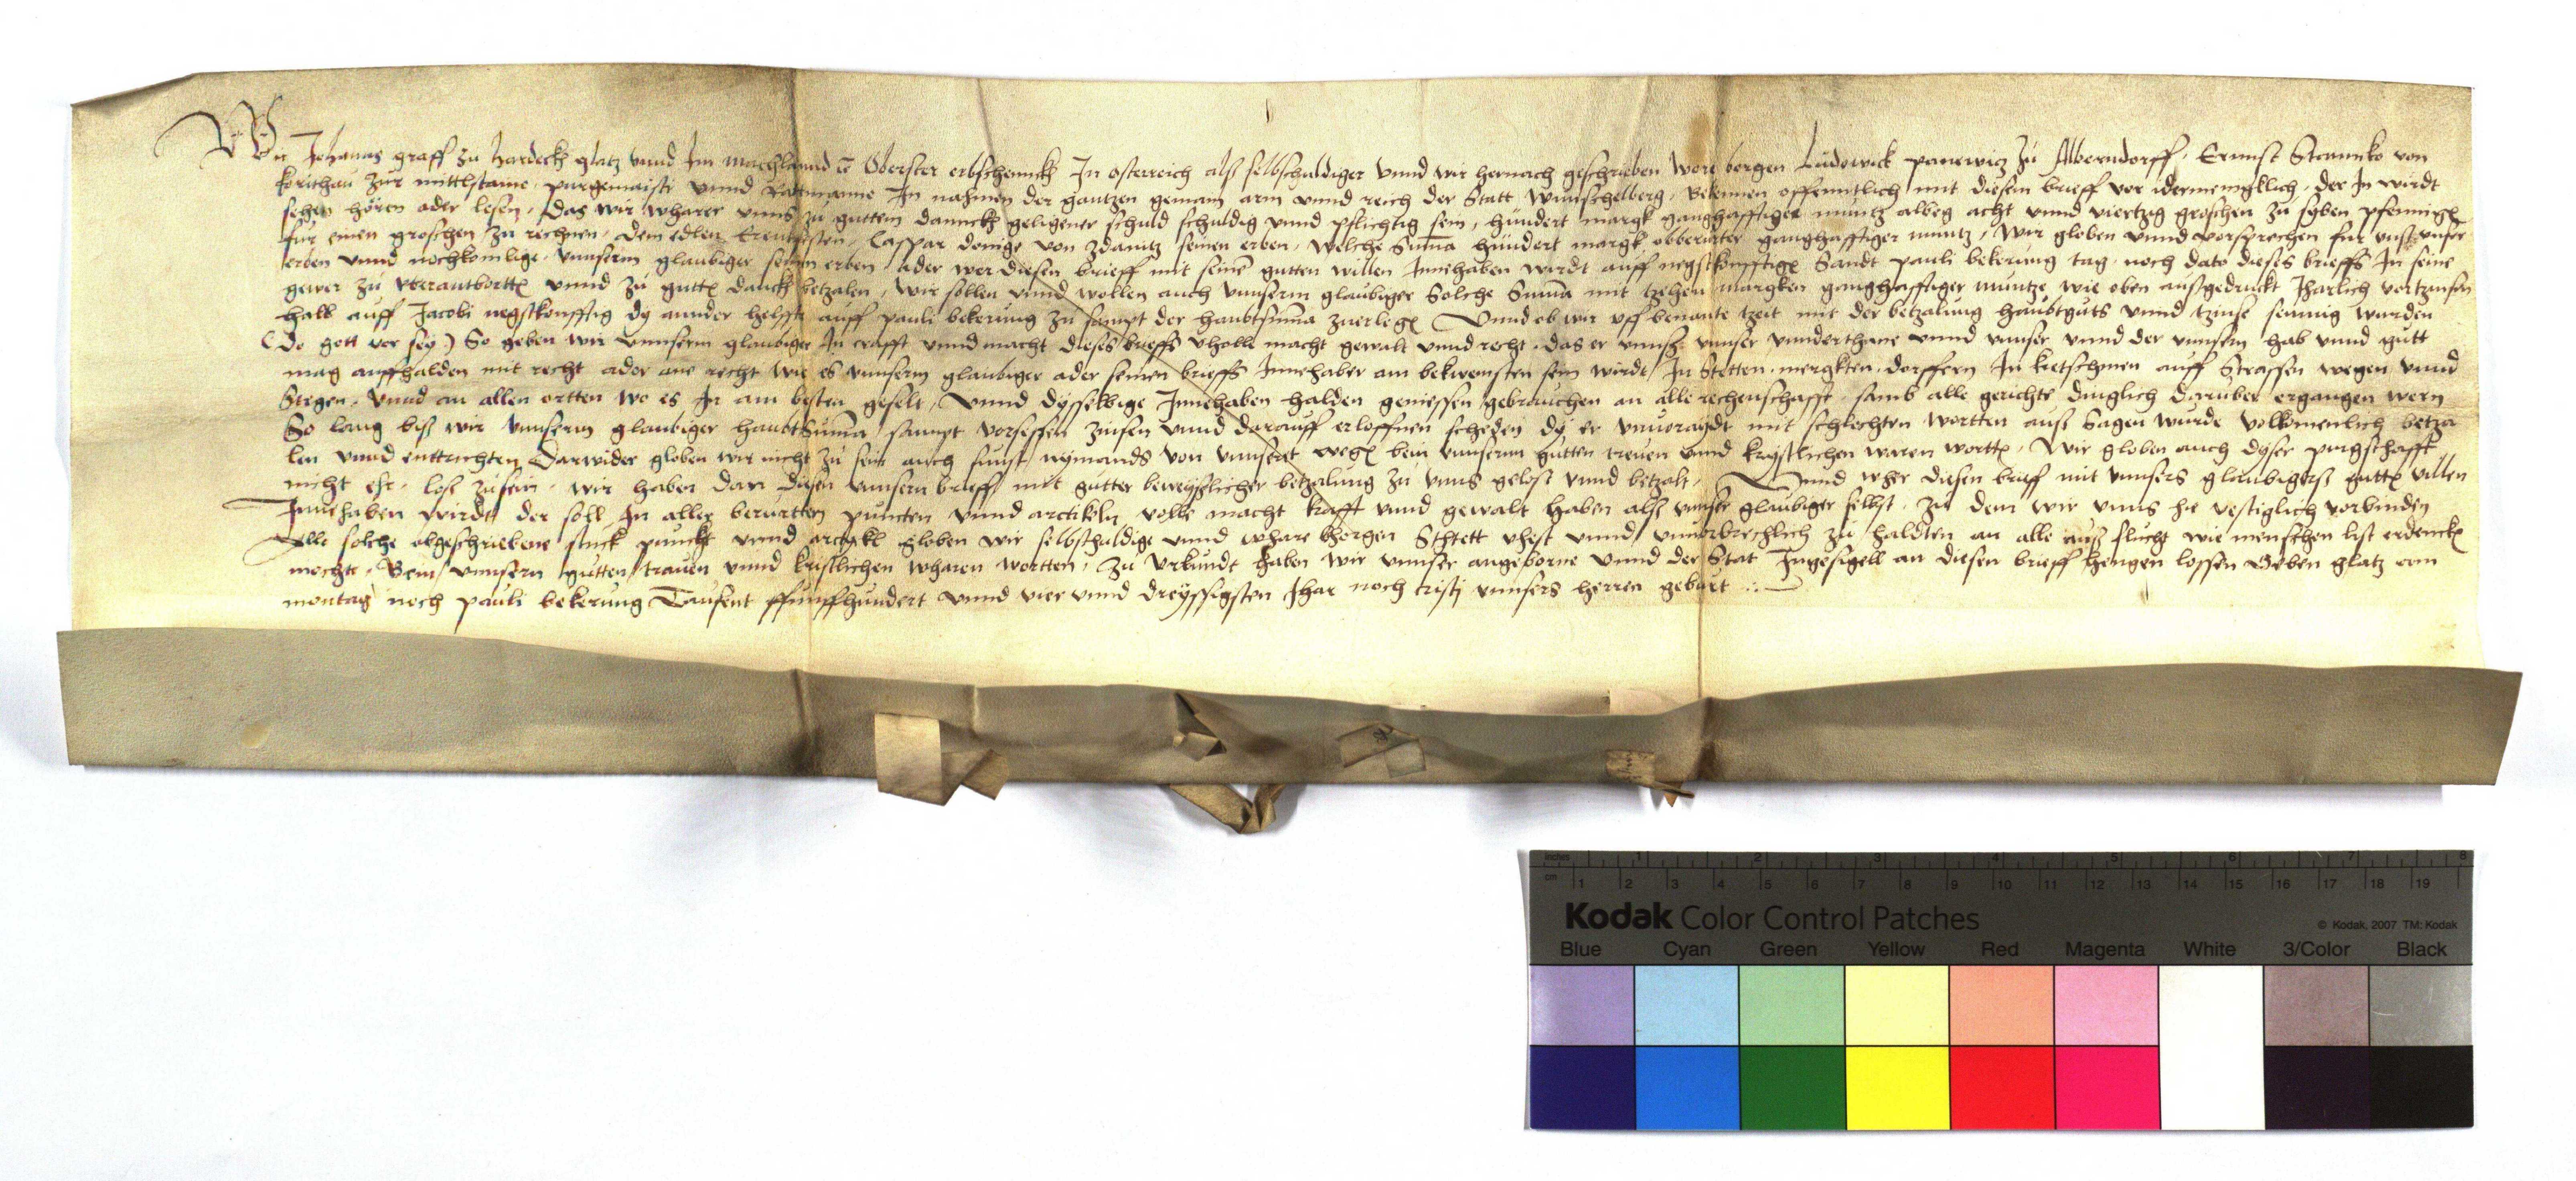 Wir Johanns graff zu Hardeck glatz vnnd Im machlannd ꝛc Oberster erbschennck In osterreich alß selbschuldiger vnnd wir hernach geschrieben wore borgen Ludowick panewicz zu Alberndorff, Ernnst Stenncko von
korithau zur mittlstaine, purgemaister vnnd Rattmanne In nahmen der gantzen gemain arm vnnd reich der Statt wunschelberg, bekennen offenntlich mit diesem brieff vor idermenigklich, der In wirdt
sehen hören oder lesen, das wir wharer vnns zu guttem dannck geligener schuld schuldig vnnd pflichtig sein, hundert margk ganghafftiger muntz albeg acht vnnd viertzig groschen zu syben pfennig
fur einen groschen zu rechnen, dem edlen Erentfesten, Caspar donige von Zdanitz seinen erben, welche Suma hundert margk obberurter ganghafftiger muntz, Wir globen vnnd vorsprechen fur vnß vnser
erben vnnd nochkomlige, vnnserm glaubiger seinen erben ader wer diesen brieff mit seinē gutten willen Innehaben wirdt auff negstkonfftige Sandt pauli bekerung tag, noch dato dieses brieffs In seine
gewer zu vberantbortten vnnd zu gutte danck betzalen, wir sollen vnnd wollen auch vnnserm glaubiger Solche Suma mit tzehen margken ganghafftiger muntze wie oben außgedruckt Jharlich vertzinsen
halb auff Jacobi negstkonfftig dy annder helffte auff pauli bekerung zu sampt der haubtsuma zuerlege Vnnd ob wir vff benante tzeit mit der betzalung haubtguts vnnd tzinse seumig wurden
(do gott vor sey) So geben wir vnnserm glaubiger In crafft vnnd macht dieses brieffs vholle macht gewalt vnnd recht, das er vnnß vnnser vnnderthane vnnd vnnser vnnd der vnnsern hab vnnd gutt
mag auffhalden mit recht ader ane recht wie es vnnserm glaubiger ader seinen brieffs Innehaber am bekwemsten sein wirdt, In Stetten, mergkten, dorffern In kretschmen auff Strassen wegen vnnd
Stegen, vnnd an allen ortten wo es In am besten gefelt, Vnnd dysselbige Innehaben halden geniessen gebrauchen an alle rechenschafft, samb alle gerichte dinglich daruber ergangen wern
So lang biß wir vnnserm glaubiger haubtsuma sampt vorsessen zinsen vnnd darauff erloffnen scheden dy er vnuoraydt mit schlechten wortten auß Sagen wurde volkomenlich betza
len vnnd enttrichten Darwider globen wir nicht zu sein auch sunst nymands von vnnsert wege bein vnnserm gutten treuen vnnd krystlichen waren wortte, Wir globen auch dyser purgschafft
nicht ehr, loß zusein, wir haben dan diesen vnnsern brieff mit gutter beweyslicher betzalung zu vnns gelost vnnd betzalt, Vnnd wher diesen brieff mit vnnsers glaubigerß gutte willen
Innehaben wirdt, der soll In allen berurtten puncten vnnd artickeln volle macht krafft vnnd gewalt haben alß vnnser glaubiger selbst, zu dem wir vnns hie vestiglich vorbinden
Alle solche obgeschriebene stuck punckt vnnd artyckl globen wir selbschuldige vnnd whare bhorgen Sthtett vhest vnnd vnuorbrechlich zu haldten an alle auß flucht wie menschen list erdencke
mochte, Beim vnnsern gutten trauen vnnd kristlichen wharen wortten, Zu vrkundt haben wir vnnser angeborne vnnd der Stat Ingesigell an diesen brieff hengen lossen Geben glatz am
montag noch pauli bekerung Tausent ffunffhundert vnnd vier vnnd dreyssigsten Jhar noch cristi vnnsers herren geburt
inches 1 2 3 4 5 6 7 8
cm 1 2 3 4 5 6 7 8 9 10 11 12 13 14 15 16 17 18 19
Kodak Color Control Patches
© Kodak, 2007 TM: Kodak
Blue Cyan Green Yellow Red Magenta White 3/Color Black